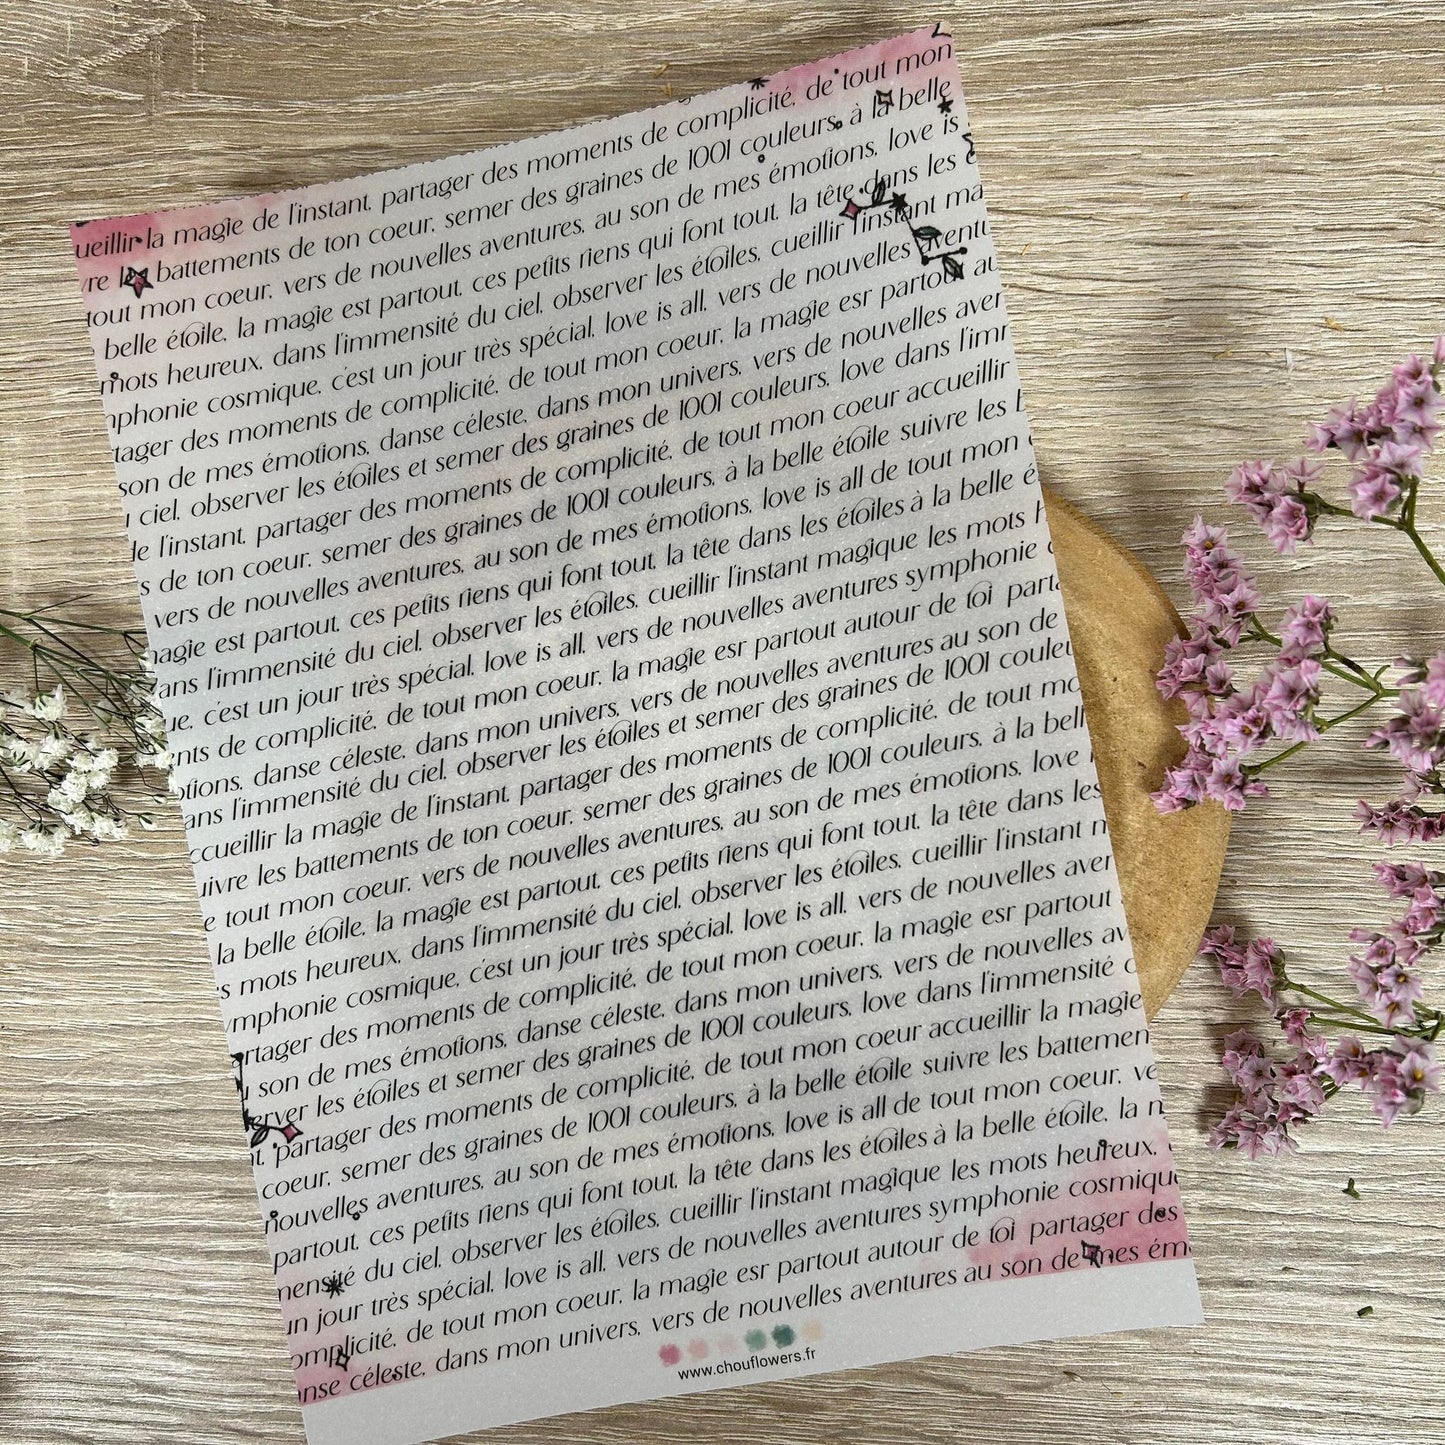 ueillir la magie de l'instant, partager des moments de complicité, de tout mon
re les battements de ton coeur, semer des graines de 1001 couleurs, à la belle
tout mon coeur, vers de nouvelles aventures, au son de mes émotions, love is
belle étoile, la magie est partout, ces petits riens qui font tout, la tête dans les é
mots heureux, dans l'immensité du ciel, observer les étoiles, cueillir l'instant ma
phonie cosmique, c'est un jour très spécial, love is all, vers de nouvelles aventu
tager des moments de complicité, de tout mon coeur, la magie esr partout au
son de mes émotions, danse céleste, dans mon univers, vers de nouvelles aven
u ciel, observer les étoiles et semer des graines de 1001 couleurs, love dans l'imm
de l'instant, partager des moments de complicité, de tout mon coeur accueillir
s de ton coeur, semer des graines de 1001 couleurs, à la belle étoile suivre les b
vers de nouvelles aventures, au son de mes émotions, love is all de tout mon c
magie est partout, ces petits riens qui font tout, la tête dans les étoiles à la belle é
ans l'immensité du ciel, observer les étoiles, cueillir l'instant magique les mots h
ue, c'est un jour très spécial, love is all, vers de nouvelles aventures symphonie c
nts de complicité, de tout mon coeur, la magie esr partout autour de toi parta
otions, danse céleste, dans mon univers, vers de nouvelles aventures au son de
ans l'immensité du ciel, observer les étoiles et semer des graines de 1001 couleu
ccueillir la magie de l'instant, partager des moments de complicité, de tout mo
uivre les battements de ton coeur, semer des graines de 1001 couleurs, à la bell
e tout mon coeur, vers de nouvelles aventures, au son de mes émotions, love i
la belle étoile, la magie est partout, ces petits riens qui font tout, la tête dans les
s mots heureux, dans l'immensité du ciel, observer les étoiles, cueillir l'instant m
ymphonie cosmique, c'est un jour très spécial, love is all, vers de nouvelles aven
artager des moments de complicité, de tout mon coeur, la magie esr partout
u son de mes émotions, danse céleste, dans mon univers, vers de nouvelles av
erver les étoiles et semer des graines de 1001 couleurs, love dans l'immensité d
t, partager des moments de complicité, de tout mon coeur accueillir la magie
coeur, semer des graines de 1001 couleurs, à la belle étoile suivre les battemen
nouvelles aventures, au son de mes émotions, love is all de tout mon coeur, ve
partout, ces petits riens qui font tout, la tête dans les étoiles à la belle étoile, la m
mensité du ciel, observer les étoiles, cueillir l'instant magique les mots heureux,
un jour très spécial, love is all, vers de nouvelles aventures symphonie cosmique
omplicité, de tout mon coeur, la magie esr partout autour de toi partager des
anse céleste, dans mon univers, vers de nouvelles aventures au son de mes ém
www.chouflowers.fr